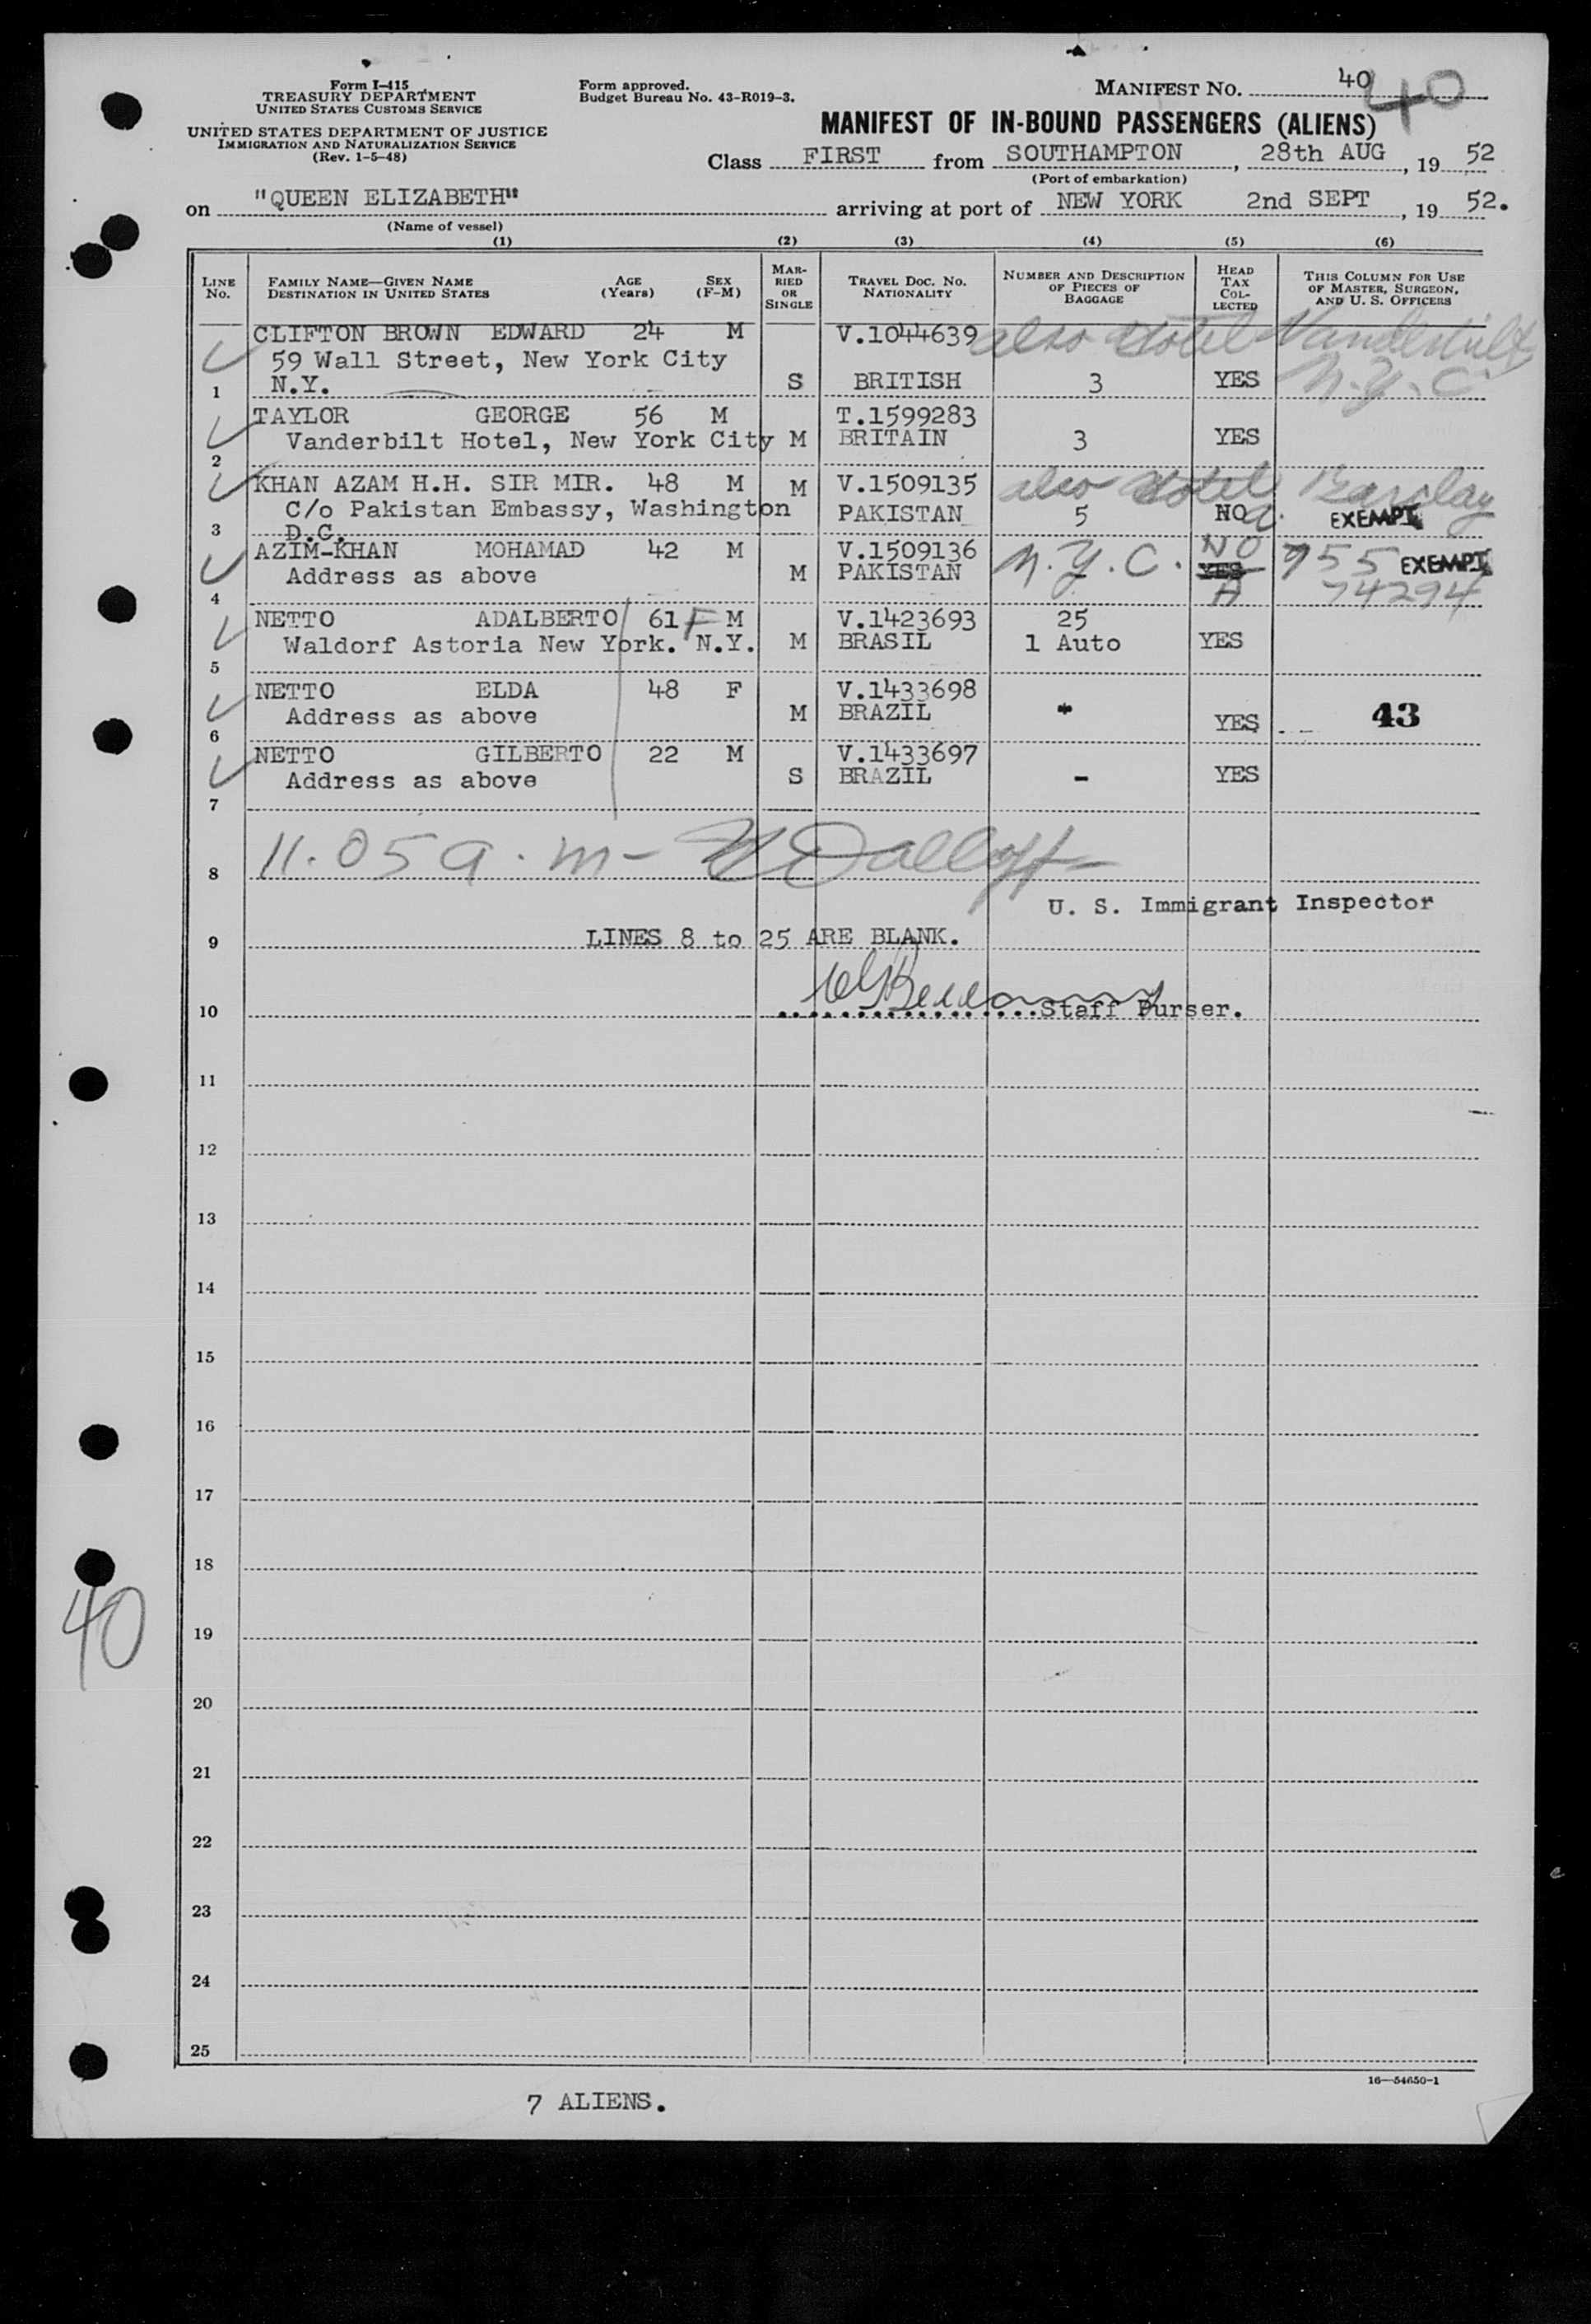 Form I-415
TREASURY DEPARTMENT
UNITED STATES CUSTOMS SERVICE
UNITED STATES DEPARTMENT OF JUSTICE
IMMIGRATION AND NATURALIZATION SERVICE
(Rev. 1-5-48)
Form approved.
Budget Bureau No. 43-R019-3.
MANIFEST NO. 40
40
MANIFEST OF IN-BOUND PASSENGERS (ALIENS)
Class FIRST from SOUTHAMPTON, 28th AUG, 19 52
(Port of embarkation)
on "QUEEN ELIZABETH" arriving at port of NEW YORK 2nd SEPT, 19 52.
(Name of vessel)
(1) (2) (3) (4) (5) (6)
LINE No.
FAMILY NAME—GIVEN NAME DESTINATION IN UNITED STATES
AGE (Years)
SEX (F-M)
MAR-RIED OR SINGLE
TRAVEL DOC. NO. NATIONALITY
NUMBER AND DESCRIPTION OF PIECES OF BAGGAGE
HEAD TAX COL-LECTED
THIS COLUMN FOR USE OF MASTER, SURGEON, AND U. S. OFFICERS
CLIFTON BROWN EDWARD 24 M V.1044639 also Hotel Vanderbilt
59 Wall Street, New York City
1 N.Y. S BRITISH 3 YES N.Y.C
TAYLOR GEORGE 56 M T.1599283
Vanderbilt Hotel, New York City M BRITAIN 3 YES
2
KHAN AZAM H.H. SIR MIR. 48 M M V.1509135 also Hotel Barclay
C/o Pakistan Embassy, Washington PAKISTAN 5 NO EXEMPT
3 D.C.
AZIM-KHAN MOHAMAD 42 M V.1509136 N.Y.C. NO 755 EXEMPT
Address as above M PAKISTAN YES
4 A 74294
NETTO ADALBERTO 61 F M V.1423693 25
Waldorf Astoria New York. N.Y. M BRASIL 1 Auto YES
5
NETTO ELDA 48 F V.1433698
Address as above M BRAZIL * YES 43
6
NETTO GILBERTO 22 M V.1433697
Address as above S BRAZIL - YES
7
8 11.05 a.m-
U. S. Immigrant Inspector
9 LINES 8 to 25 ARE BLANK.
10 Staff Purser.
11
12
13
14
15
16
17
18
40
19
20
21
22
23
24
25
16—54650-1
7 ALIENS.